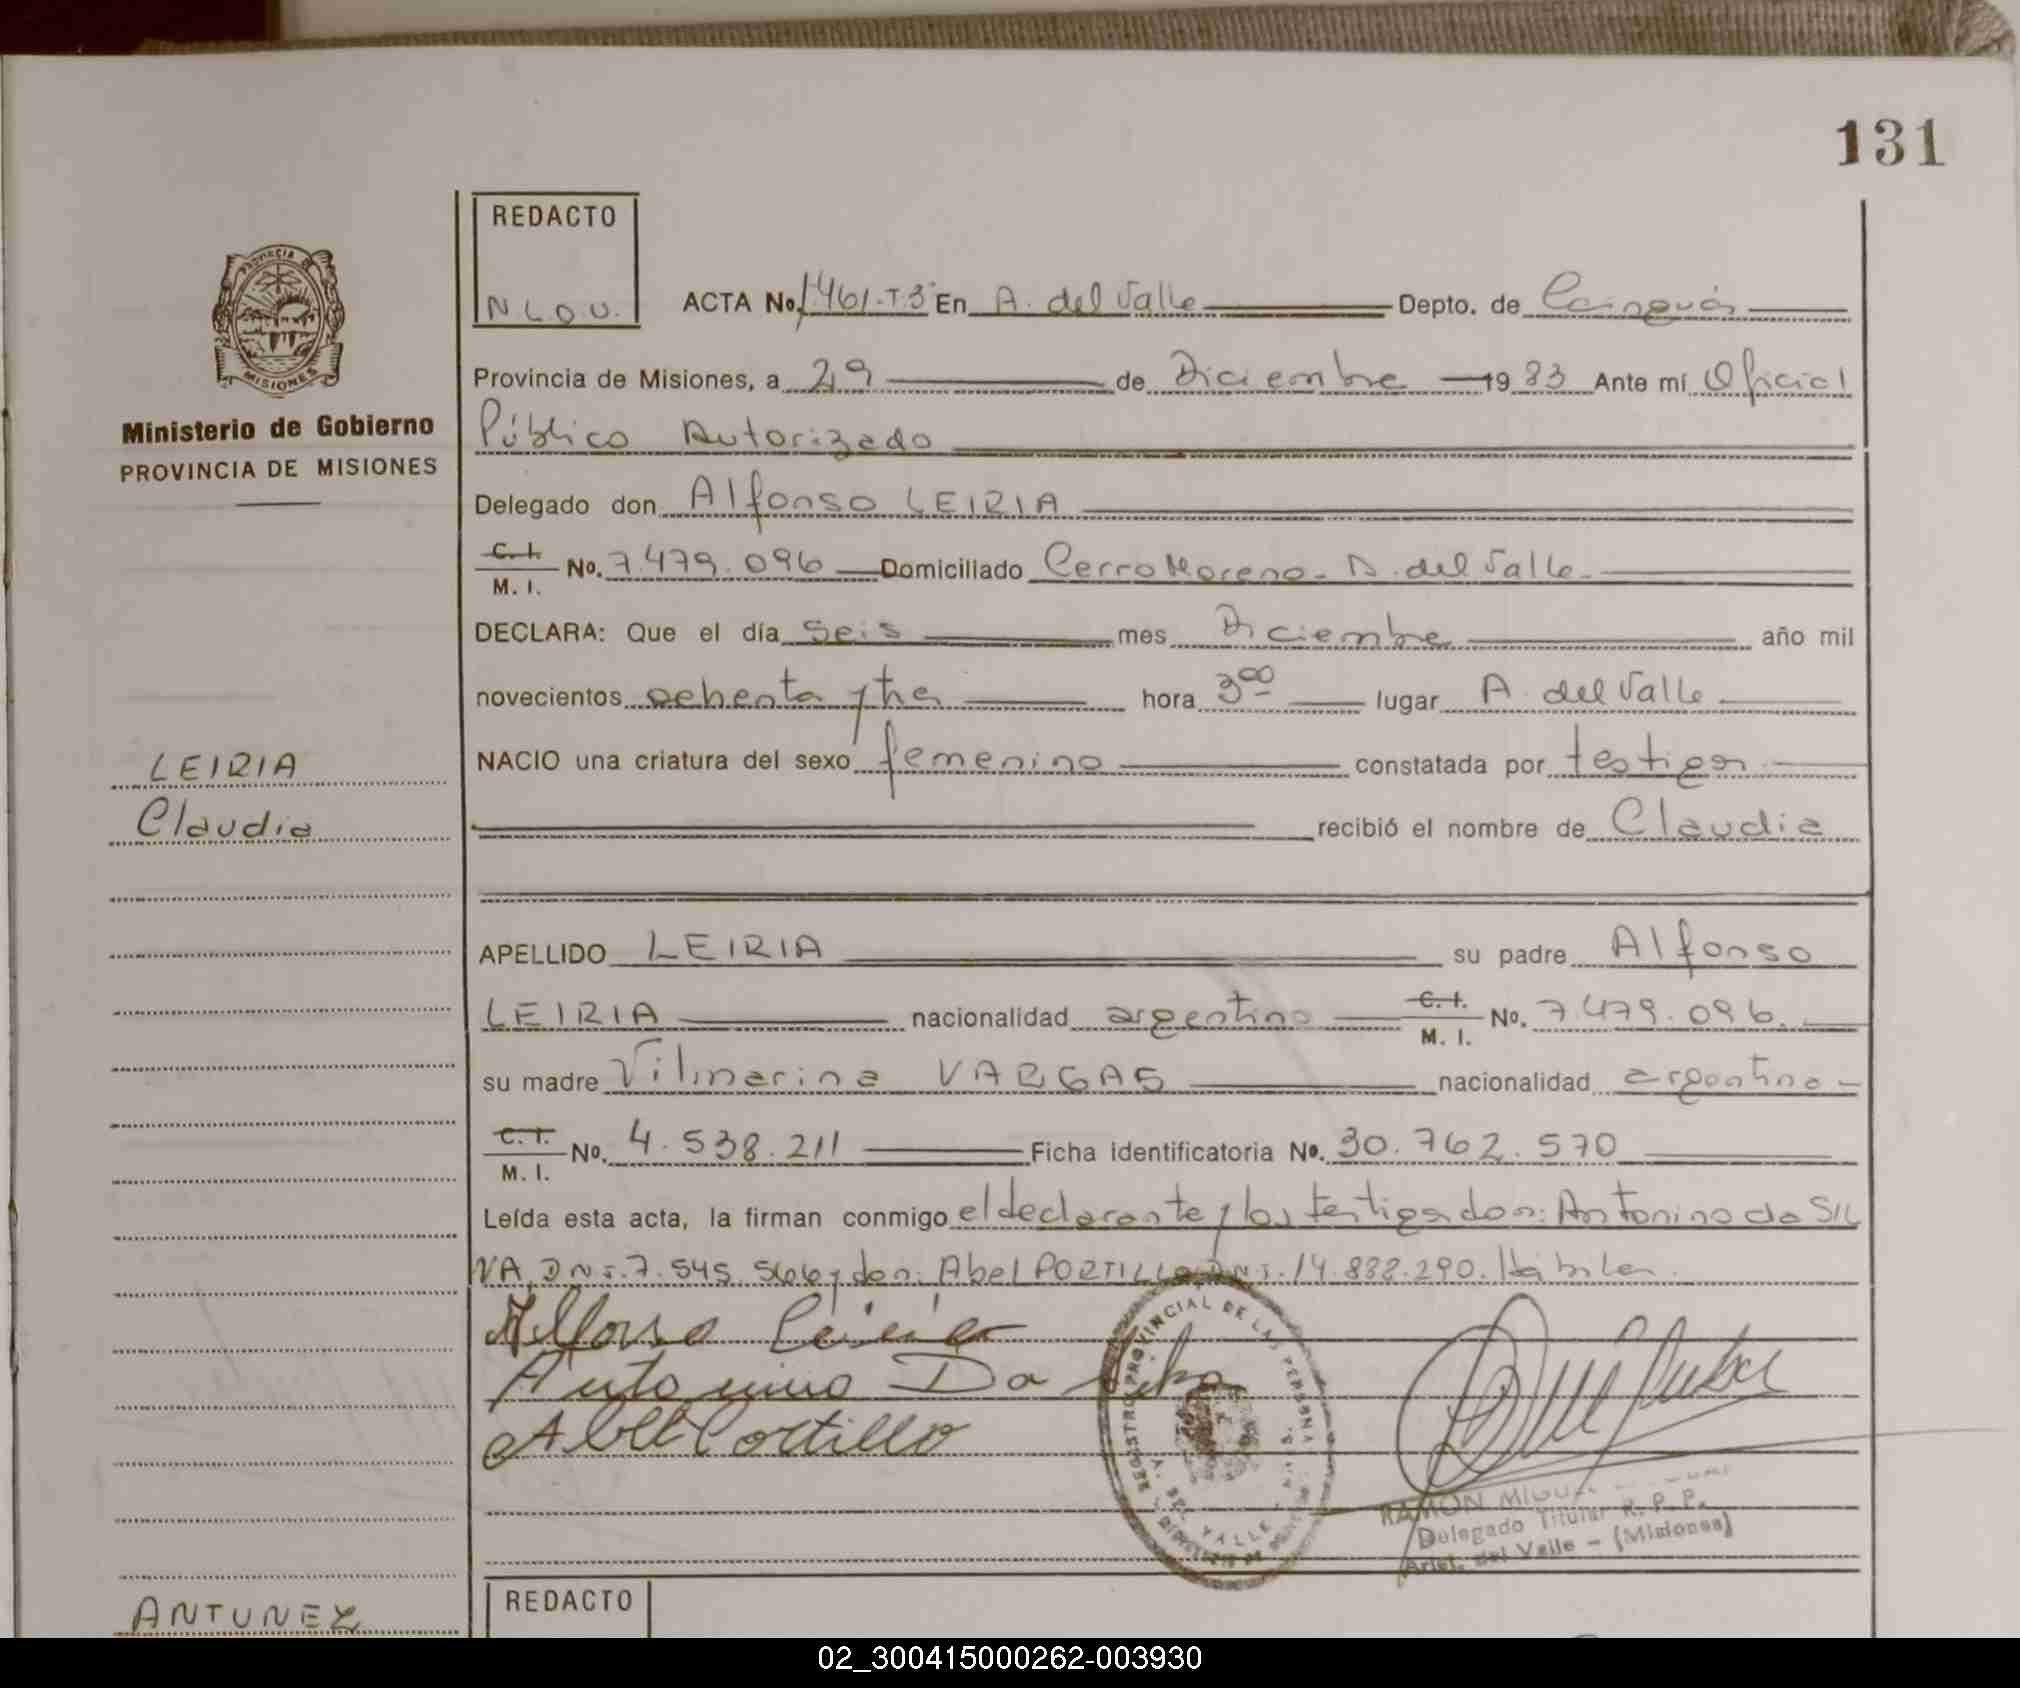 131
REDACTO
N L O U.
PROVINCIA DE
MISIONES
Ministerio de Gobierno
PROVINCIA DE MISIONES
ACTA No. 1.461-T.3º En A. del Valle Depto. de Cainguás
Provincia de Misiones, a 29 de Diciembre 1983 Ante mí Oficial
Público Autorizado
Delegado don Alfonso LEIRIA
C. I.
M. I. No. 7.479.096 Domiciliado Cerro Moreno - A. del Valle
DECLARA: Que el día seis mes Diciembre año mil
novecientos ochenta y tres hora 3ºº lugar A. del Valle
NACIO una criatura del sexo femenino constatada por testigos
LEIRIA
Claudia
recibió el nombre de Claudia
APELLIDO LEIRIA su padre Alfonso
LEIRIA nacionalidad argentino C. I. M. I. No. 7.479.096.
su madre Vilmarina VARGAS nacionalidad argentina
C. I.
M. I. No. 4.538.211 Ficha identificatoria No. 30.762.570
Leída esta acta, la firman conmigo el declarante y los testigos don: Antonino da SIL
VA, DNI. 7.545.566 y don: Abel PORTILLO DNI. 14.888.290. Hábiles.
Alfonso Leiria
Antonino Da Silva
Abel Portillo
REGISTRO PROVINCIAL DE LAS PERSONAS
VALLE
RAMON
Delegado Titular R. P. P.
Arist. del Valle - (Misiones)
ANTUNEZ
REDACTO
02_300415000262-003930